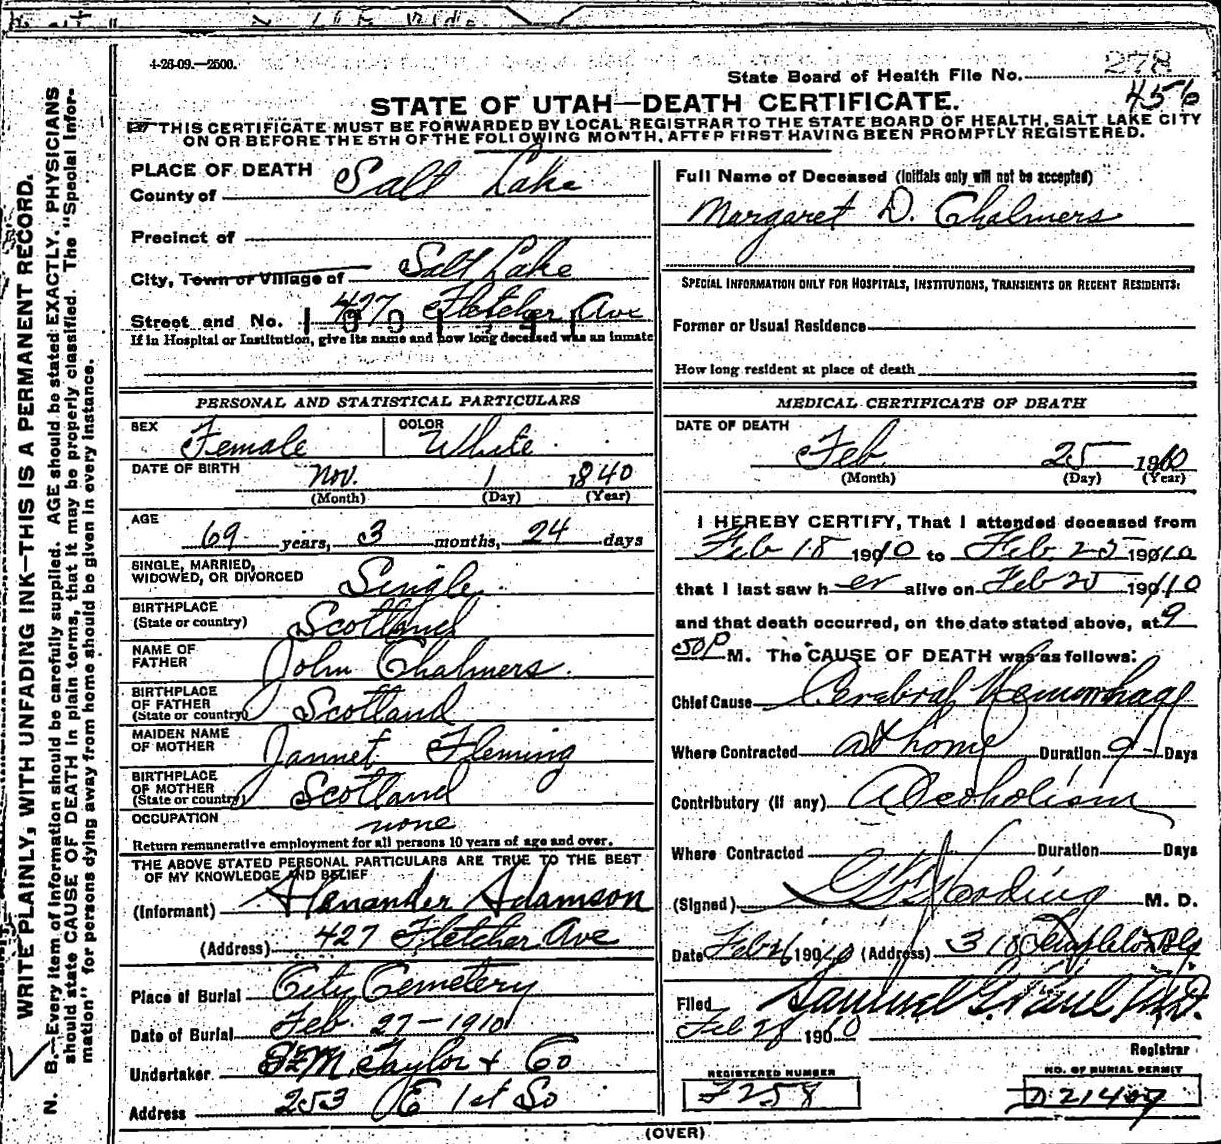 4-26-09.—2500.
278
State Board of Health File No.
456
STATE OF UTAH—DEATH CERTIFICATE.
THIS CERTIFICATE MUST BE FORWARDED BY LOCAL REGISTRAR TO THE STATE BOARD OF HEALTH, SALT LAKE CITY
ON OR BEFORE THE 5TH OF THE FOLLOWING MONTH, AFTER FIRST HAVING BEEN PROMPTLY REGISTERED.
WRITE PLAINLY, WITH UNFADING INK—THIS IS A PERMANENT RECORD.
N. B.—Every item of information should be carefully supplied. AGE should be stated EXACTLY. PHYSICIANS
should state CAUSE OF DEATH in plain terms, that it may be properly classified. The "Special Infor-
mation" for persons dying away from home should be given in every instance.
PLACE OF DEATH
County of Salt Lake
Precinct of
City, Town or Village of Salt Lake
Street and No. 427 Fletcher Ave
If in Hospital or Institution, give its name and how long deceased was an inmate
PERSONAL AND STATISTICAL PARTICULARS
SEX Female COLOR White
DATE OF BIRTH Nov. 1 1840
(Month) (Day) (Year)
AGE
69 years, 3 months, 24 days
SINGLE, MARRIED,
WIDOWED, OR DIVORCED Single
BIRTHPLACE
(State or country) Scotland
NAME OF
FATHER John Chalmers.
BIRTHPLACE
OF FATHER
(State or country) Scotland
MAIDEN NAME
OF MOTHER Jannet Fleming
BIRTHPLACE
OF MOTHER
(State or country) Scotland
OCCUPATION none
Return remunerative employment for all persons 10 years of age and over.
THE ABOVE STATED PERSONAL PARTICULARS ARE TRUE TO THE BEST
OF MY KNOWLEDGE AND BELIEF
(Informant) Adamson
(Address) 427 Fletcher Ave
Place of Burial City Cemetery
Date of Burial Feb. 27-1910
Undertaker Taylor & Co
Address 253 E 1st So
Full Name of Deceased (Initials only will not be accepted)
Margaret D. Chalmers
SPECIAL INFORMATION ONLY FOR HOSPITALS, INSTITUTIONS, TRANSIENTS OR RECENT RESIDENTS:
Former or Usual Residence
How long resident at place of death
MEDICAL CERTIFICATE OF DEATH
DATE OF DEATH
Feb 25 1910
(Month) (Day) (Year)
I HEREBY CERTIFY, That I attended deceased from
Feb 18 1910 to Feb 25 1910
that I last saw her alive on Feb 25 1910
and that death occurred, on the date stated above, at 9
50 P M. The CAUSE OF DEATH was as follows:
Chief Cause Cerebral Hemorrhage
Where Contracted at home Duration 9 Days
Contributory (if any) Alcoholism
Where Contracted Duration Days
(Signed) Harding M. D.
Date Feb 26 1910 (Address) 318 Templeton Blg
Filed Samuel G. Paul M.D.
Feb 28 1910
Registrar
REGISTERED NUMBER
F258
NO. OF BURIAL PERMIT
D21407
(OVER)